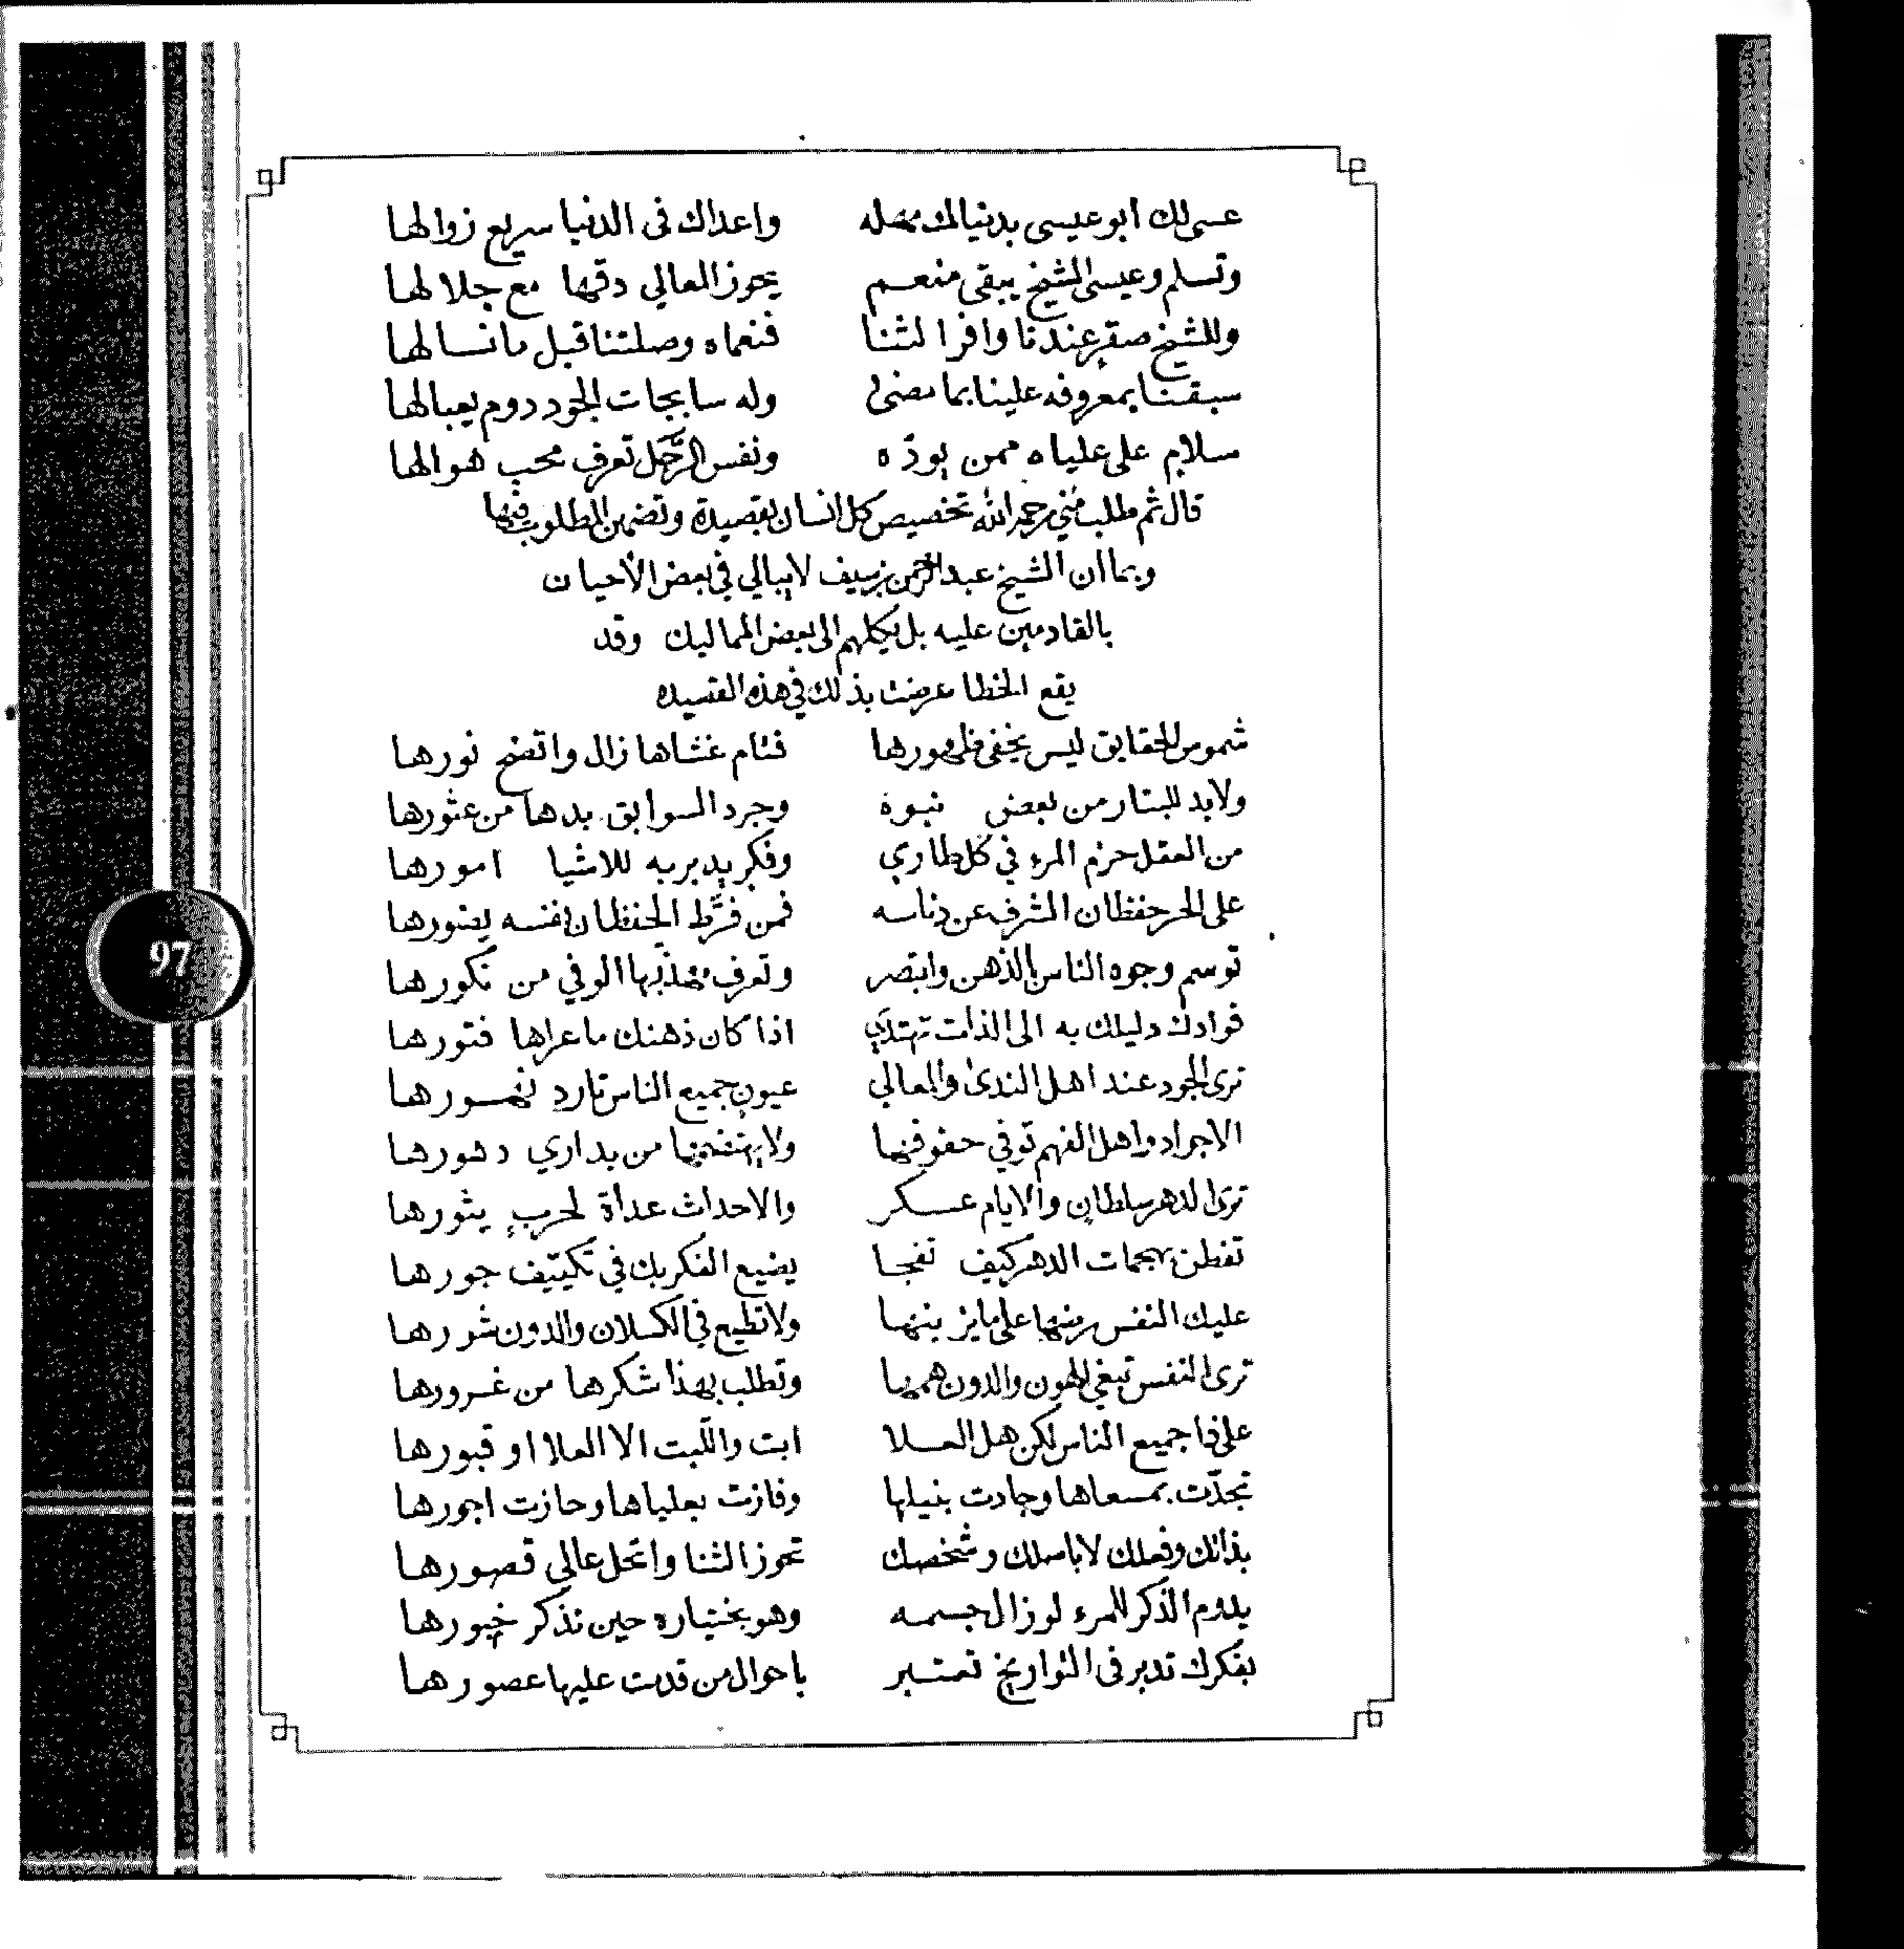 عسى لك ابو عيسى بدنيالك مهله واعداك فى الدنيا سريع زوالها
وتسلم وعيسى الشيخ يبقى منعم يحوز المعالي دقها مع جلالها
وللشيخ صقر عندنا وافر الثنا فنعماه وصلتنا قبل مانسالها
سبقنا بمعروفه علينا بما مضى وله سابحات الجود دوم يعبالها
سلام على علياه ممن يودّه ونفس الرَّجل تعرف محب هوالها
قال ثم طلب مني رحمه الله تخصيص كل انسان بقصيدة وتضمن المطلوب فيها
وبما ان الشيخ عبد الرحمن بن سيف لايبالي في بعض الأحيان
بالقادمين عليه بل يكلهم الى بعض المماليك وقد
يقع الخطا عرضت بذلك في هذه القسيده
شموس الحقايق ليس يخفى ظهورها قتام غشاها زال واتضح نورها
ولابد للبتار من بعض نبوة وجرد السوابق بدها من عثورها
من العقل حزم المرء في كل طاري وفكر يدبر به للاشيا امورها
على الحر حفظان الشرف عن دناسه فمن فرَّط الحفظان نفسه يضورها
توسم وجوه الناس بالذهن وابتصر وتعرف مهذبها الوفي من نكورها
فوادك دليلك به الى الذات تهتدي اذا كان ذهنك ماعراها فتورها
ترى الجود عند اهل الندى والمعالي عيون جميع الناس تارد نهورها
الاجواد واهل الفهم توفي حقوقها ولا يهتضمها من يداري دهورها
ترى الدهر سلطان والايام عسكر والاحداث عداة لحرب يثورها
تفطن بهجمات الدهر كيف تفجا يضيع الفكر بك في تكييف جورها
عليك النفس رضها على مايزينها ولا تطيع في الكسلان والدون شورها
ترى النفس تبغي الهون والدون همها وتطلب بهذا شكرها من غرورها
على ذا جميع الناس لكن هل العلا ابت والّبت الا العلا او قبورها
تجدّت بمسعاها وجادت بنيلها وفازت بعلياها وحازت اجورها
بذاتك وفعلك لا باصلك وشخصك تحوز الثنا واتحل عالي قصورها
يدوم الذكر للمرء لو زال جسمه وهو بختياره حين تذكر خبورها
بفكرك تدبر فى التواريخ تعتبر باحوال من قدمت عليها عصورها
97